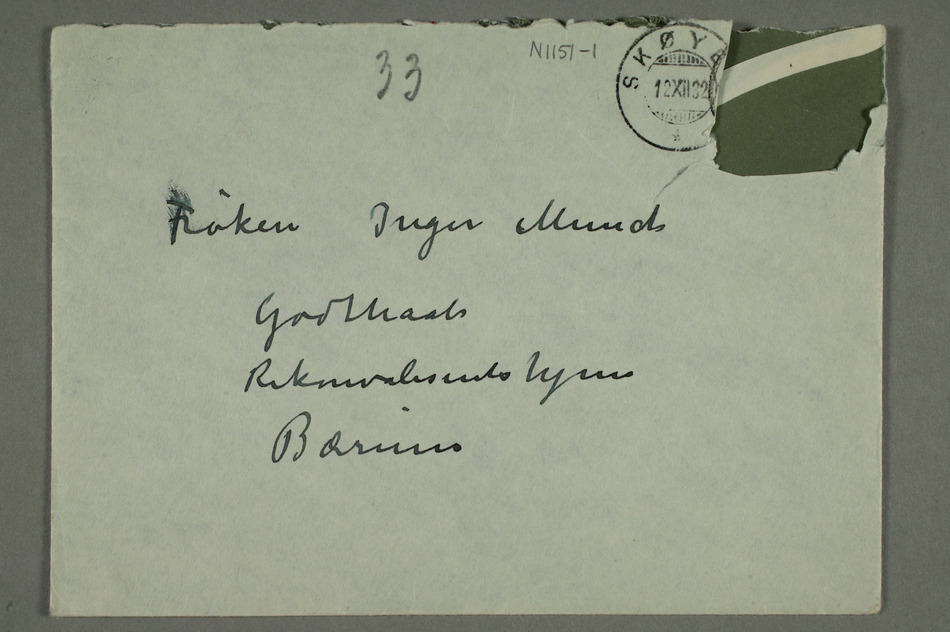 33
N1151-1
SKØYE
12XII32
Fröken Inger Munch
Godthaab
Rekonvalesents hjem
Bærum